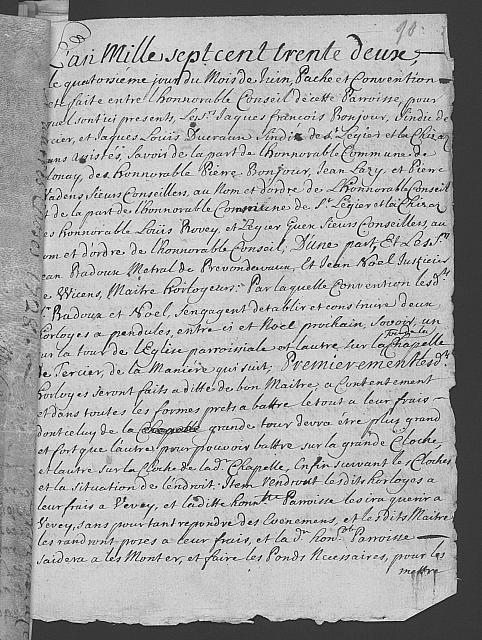 90.
L'an Mille sept cent trente deux,
le quatorsieme jour du Mois de Juin, Pache et Convention
est faite entre l'honnorable Conseil de cette Parroisse, pour
lequel sont ici presents, Les Srs. Jaques françois Bonjour, Sindic de
Tercier, et Jaques Louis Ducraux Sindic de St. Légier et la Chiraz
assistés, Savoir de la part de l'honnorable Commune de
Blonay, des honnorable Pierre Bonjour, Jean Lazy, et Pierre
Sieurs Conseillers, au Nom et d'ordre de L'honnorable Conseil
et de la part de l'honnorable Commune de St. Légier et la Chiraz
des honnorable Louis Rovey, et Légier Guex Sieurs Conseillers, au
nom et d'ordre de l'honnorable Conseil, D'une part, Et Les Srs.
Jean Badoux Metral de Prevondevaux, Et Jean Noël Justicier
de Vicens, Maitre horlogeurs. Par laquelle Convention les dts.
Srs. Badoux et Noël, s'engagent d'etablir et construire deux
horloges a pendules, entre ci et Noël prochain, Savoir, un
sur la tour de l'Eglise parroissiale et l'autre sur la Chapelle
de Tercier, de la Maniére qui suit, Premierement les dts.
horloges seront faits a ditte de bon Maitre, a Contentement
et dans toutes les formes prets a battre le tout a leur frais
dont celuy de la grande tour devra étre plus grand
et fort que l'autre pour pouvoir battre sur la grande Cloche
et l'autre sur la Cloche de la de. Chapelle, Enfin suivant les Cloches
et la situation de l'endroit. Item Rendront les dits horloges a
leur frais a Vevey, et la ditte honble. Parroisse les ira querir a
Vevey, sans pourtant repondre des Evenemens, et les dits Maitre
les randront posés a leur frais, et la de. honble. Parroisse
aidera a les Monter, et faire les Ponds Necessaires, pour les
mettre